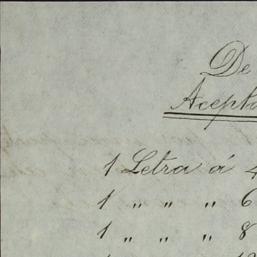 De
Acepta
1 Letra á 4
1 " " " 6
1 " " " 8